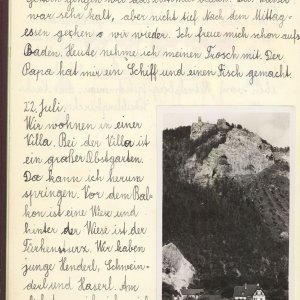 war sehr kalt, aber nicht tief. Nach dem Mittag-
essen gechen wir wieder. Ich freue mich schon aufs
Baden. Heute nehme ich meinen Frosch mit. Der
Papa hat mir ein Schiff und einen Fisch gemacht.
22. Juli.
Wir wohnen in einer
Villa. Bei der Villa ist
ein großer Obstgarten.
Da kann ich herum
springen. Vor dem Bal-
kon ist eine Wiese und
hinter der Wiese ist der
Türkensturz. Wir haben
junge Henderl, Schwein-
derl und Haserl. Am